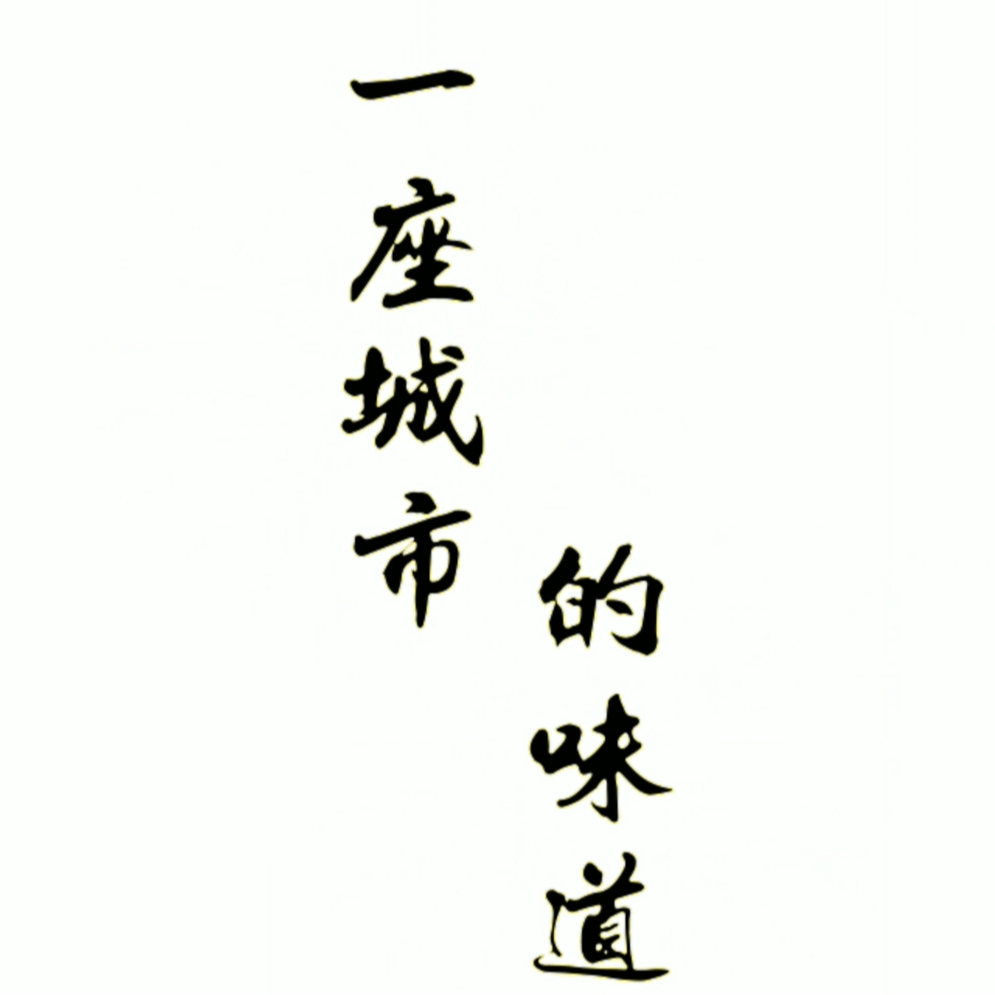 一座城市
的味道